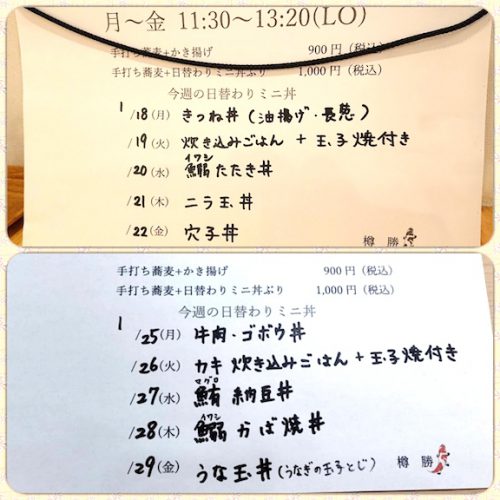 月～金 11:30～13:20(LO)
手打ち蕎麦+かき揚げ 900円（税込）
手打ち蕎麦+日替わりミニ丼ぶり 1,000円（税込）
今週の日替わりミニ丼
1/18(月) きつね丼（油揚げ・長葱）
/19(火) 炊き込みごはん + 玉子焼付き
イワシ
/20(水) 鰯たたき丼
/21(木) ニラ玉丼
/22(金) 穴子丼
樽勝
手打ち蕎麦+かき揚げ 900円（税込）
手打ち蕎麦+日替わりミニ丼ぶり 1,000円（税込）
今週の日替わりミニ丼
1/25(月) 牛肉・ゴボウ丼
/26(火) カキ炊き込みごはん + 玉子焼付き
マグロ
/27(水) 鮪納豆丼
イワシ
/28(木) 鰯かば焼丼
/29(金) うな玉丼（うなぎの玉子とじ）
樽勝